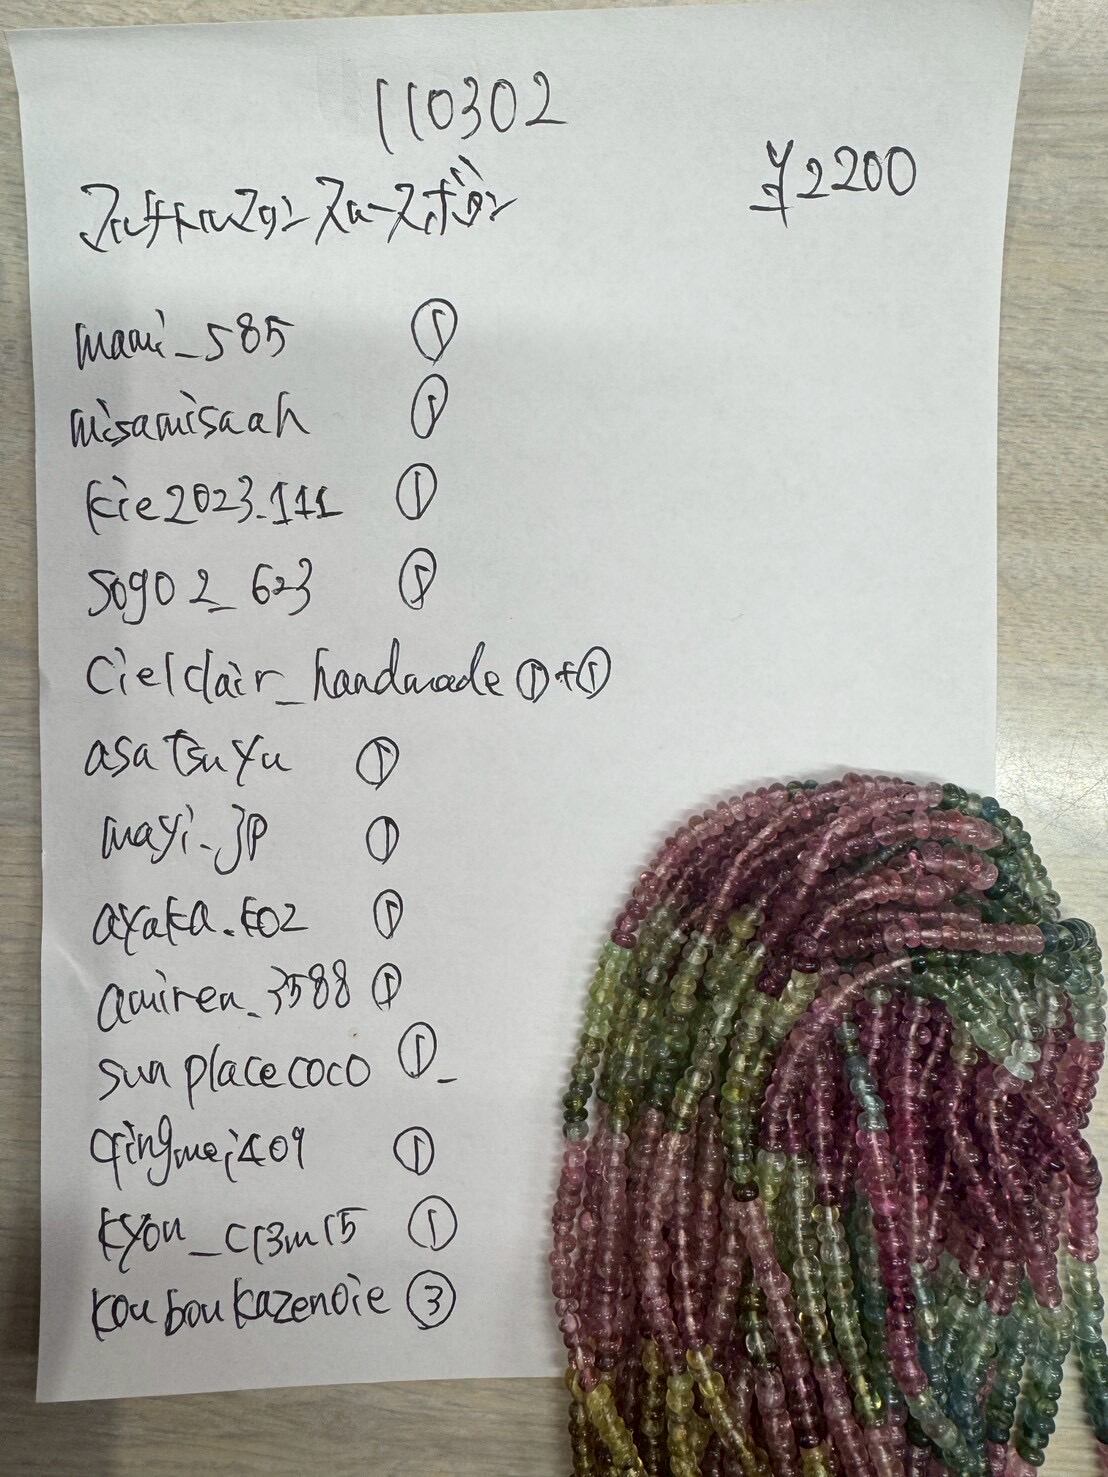 110302
¥2200
マルチトルマリン スムースボタン
mami_585 ①
misamisaah ①
kie2023.111 ①
sogo2_623 ①
cielclair_handmade ①+①
asatsuyu ①
mayi_jp ①
ayaka.k02 ①
amiren_3588 ①
sunplacecoco ①
qingmei409 ①
kyou_cr3m15 ①
kouboukazenoie ③